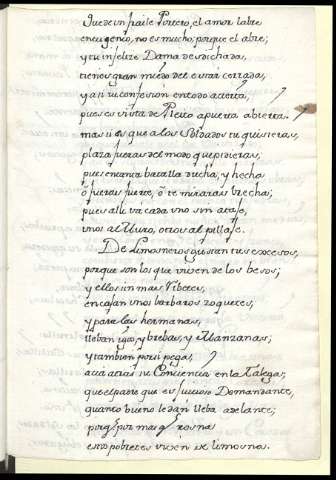 Que de un fraile Portero, el amor labre
en cugenio, no es mucho; porque el abre;
y tu infelize Dama desdichada,
tienes gran miedo del estar cerrada,
y asi tu confesion en todo acierta,
pues es vista de Pleito a puerta abierta.
mas si es que a los Soldados tu quisieras,
plaza fueras del modo que pidieras,
pues en una batalla dicha, y hecha
ô fueras fuerte, ô te miraras brecha;
pues alli va cada uno sin ataje,
unos al Muro, otros al pillaje.
De Limosneros gustan tres excesos,
porque son los que viven de los besos;
y ellos in mas Viberes,
encajan unos barbaros zoquetes;
y para las hermanas
lleban higos, y brebas, y Manzanas;
y tambien por si pega,
acia atras su Conciencia en la Talega;
que el padre que es juicioso Demandante,
quanto bueno le dan lleba adelante;
porque por mas
estos pobretes viven de limosna.